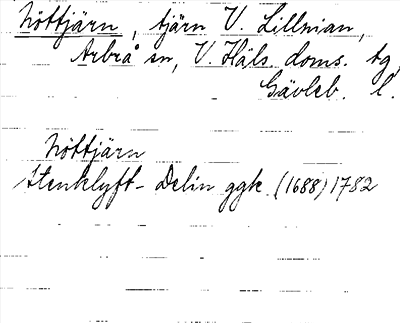 Nöttjärn, tjärn V. Lillnian,
Arbrå sn, V. Häls. doms. tg
Gävleb. l.
Nöttjärn
Stenklyft-Delin ggk (1688) 1782